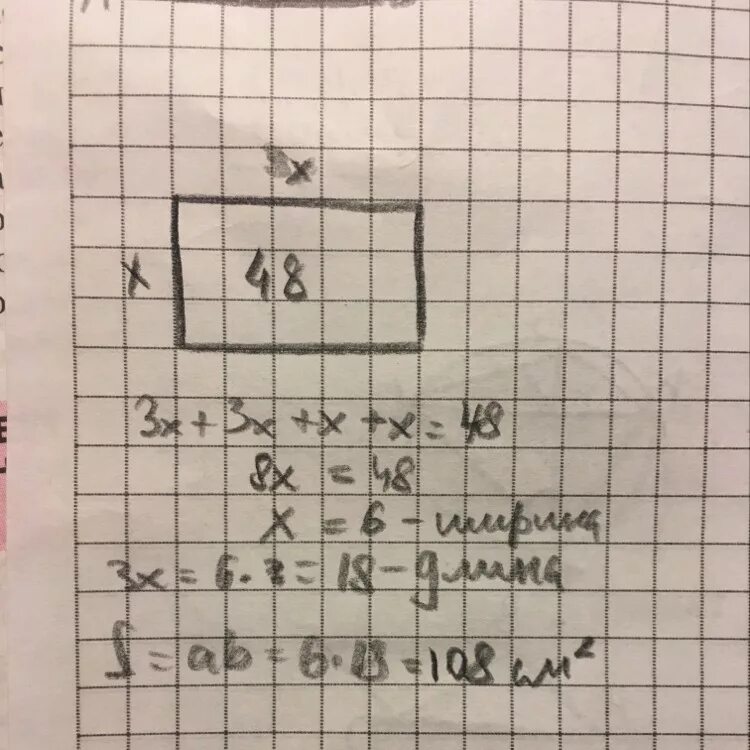 x
x 48
3x + 3x + x + x = 48
8x = 48
x = 6 - ширина
3x = 6 · 3 = 18 - длина
S = ab = 6 · 18 = 108 см²